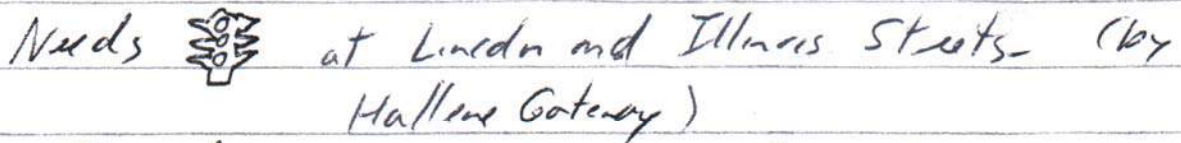 Needs at Lincoln and Illinois Streets- (by
Hallene Gateway)